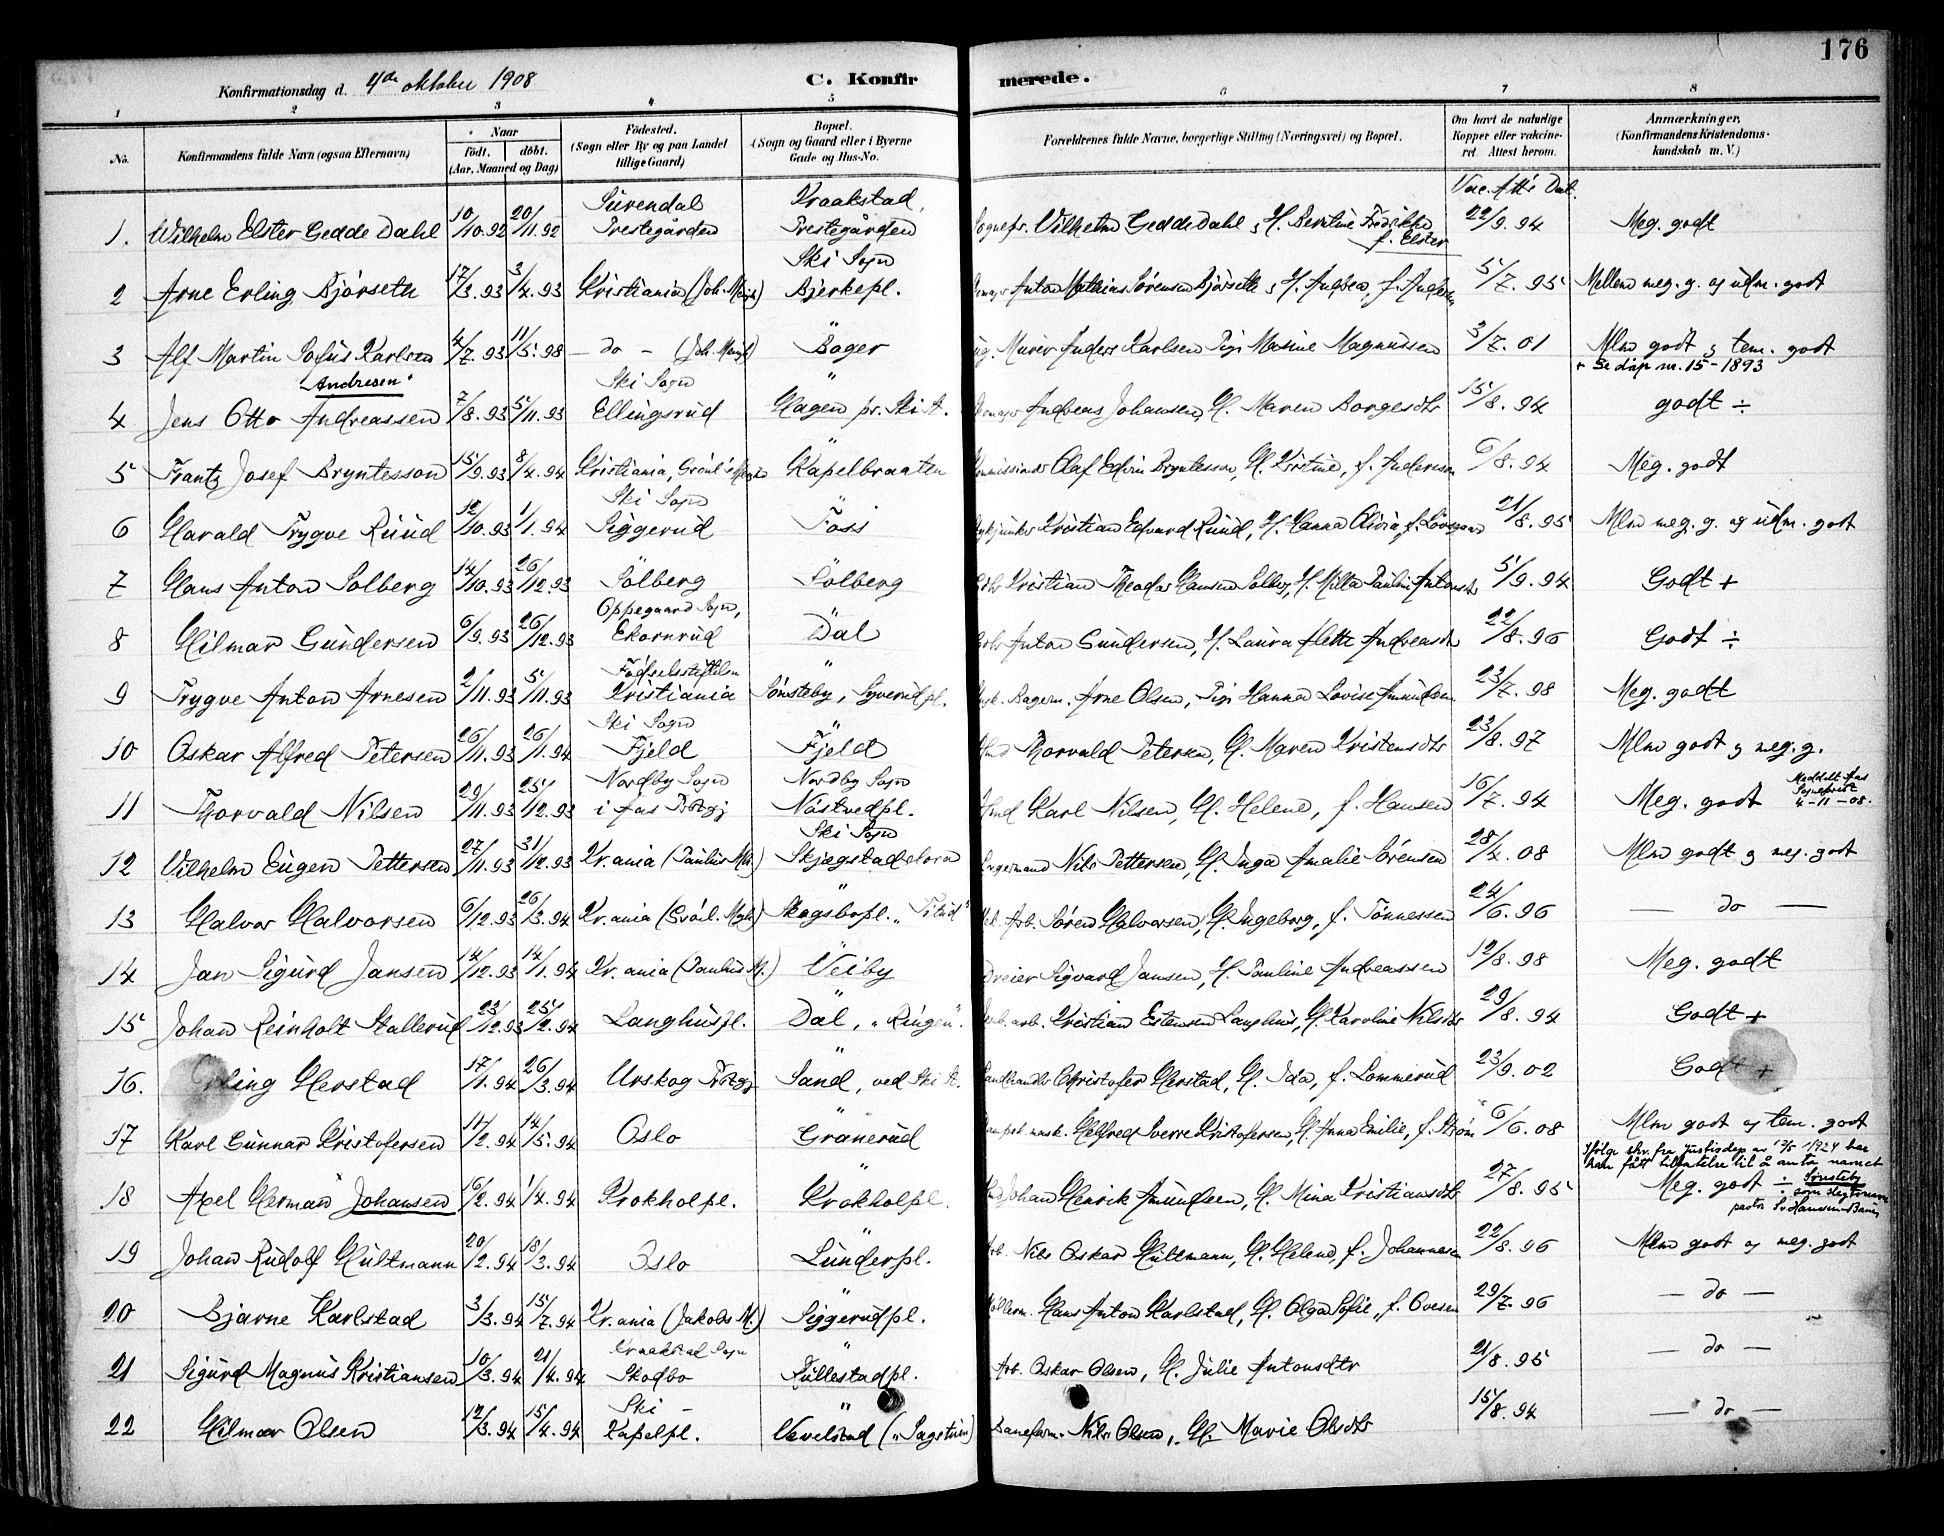 176
Konfirmationsdag d. 4de oktober 1908 C. Konfirmerede.
1 2 3 4 5 6 7 8
No. Konfirmandens fulde Navn (ogsaa Efternavn) Naar født. døbt. (Aar, Maaned og Dag) Fødested. (Sogn eller By og paa Landet tillige Gaard) Bopæl. (Sogn og Gaard eller i Byerne Gade og Hus-No. Forældrenes fulde Navne, borgerlige Stilling (Næringsvei) og Bopæl. Om havt de naturlige Kopper eller vaccineret. Attest herom. Anmærkninger. (Konfirmandens Kristendomskundskab m. V.)
Vac. Att's Dat.
1. Wilhelm Elster Gedde Dahl 10/10.92 20/11.92 Surendal Prestegården Kraakstad, Prestegården Sognepr. Vilhelm Gedde Dahl, H. f. Elster 22/9.94 Meg. godt
2 Arne Erling Bjørseth 17/3.93 3/4.93 Kristiania Ski Sogn Bjerkepl. Anton Mathias Sørensen Bjørseth 5/7.95 Mellem meg. g. og udm. godt
3 Alf Martin Sofus Karlsen 4/7.93 11/5.98 — do — " Bøger Murer Anders Karlsen Pige Maxine Magnusen 3/7.01 Mlm godt & tem. godt
+ Se dåp nr. 15 - 1893
4 Jens Otto Andreassen "Andresen" 7/8.93 5/11.93 Ski Sogn Ellingsrud " Hagen pr. Ski st. Andreas Johansen, H. Maren Borgesdtr 15/8.94 godt ÷
5 Frantz Josef Bryntesson 15/9.93 8/4.94 Kristiania, " Kapelbraaten Olaf Edvin Bryntesson, H. Kristine, f. Anderson 6/8.94 Meg. godt
6 Harald Trygve Ruud 12/10.93 1/1.94 Ski Sogn Siggerud " Foss Kristian Edvard Ruud, H. Hanna Olivia, f. 21/8.95 Mlm meg. g. og udm. godt
7 Hans Anton Solberg 14/10.93 26/12.93 " Solberg " Solberg Kristian Theodor Hansen Solberg, H. Milla Pauline Antonsdtr 5/9.94 Godt +
8 Hilmar Gundersen 6/9.93 26/12.93 Oppegaard Sogn, Ekornrud " Dal Anton Gundersen, H. Laura Alette Andreasdtr 22/8.96 Godt ÷
9 Trygve Anton Arnesen 2/11.93 5/11.93 Fødselsstiftelsen Kristiania " Sønsteby, Syverudpl. Bagerm. Arne Olsen, Pige Hanna Lovise Amundsen 23/7.98 Meg. godt
10 Oskar Alfred Petersen 26/11.93 26/1.94 Ski Sogn Fjeld " Fjeld Thorvald Petersen, H. Maren Kristensdtr 23/8.97 Mlm godt & meg. g.
11 Thorvald Nilsen 29/11.93 25/12.93 Nordby Sogn i Aas Prstgj Nordby Sogn Nøstvedpl. Karl Nilsen, H. Helene, f. Hansen 16/7.94 Meg. godt Meddelt Aas Sogneprest 4-11-08.
12 Vilhelm Eugen Pettersen 27/11.93 31/12.93 Kr.ania (Paulus Mh.) Ski Sogn Skjægstadelora Nils Pettersen, H. Inga Amalie Sørensen 28/4.08 Mlm godt & meg. godt
13 Halvor Halvorsen 6/12.93 26/3.94 Kr.ania " Skogsbopl. Arb. Søren Halvorsen, H. Ingeborg, f. Tønnessen 24/6.96 — do —
14 Jan Sigurd Jansen 14/12.93 14/1.94 Kr.ania (Paulus M.) " Veiby Dreier Sigvard Jansen, H. Pauline Andreassen 12/8.98 Meg. godt
15 Johan Reinholt Stallerud 23/12.93 25/2.94 Langhuspl. " Dal, "Ringen". Kristian Estensen Langhus, H. Karoline Nilsdtr 29/8.94 Godt +
16. Erling Herstad 17/1.94 26/3.94 Urskog Prstgj " Sand, ved Ski st. Landhandler Christofer Herstad, H. Ida, f. Lommerud 23/9.02 Godt +
17 Karl Gunnar Kristofersen 11/2.94 14/5.94 Oslo " Granerud Helfred Sverre Kristofersen, H. Anna Emilie, f. Strøm 6/6.08 Mlm godt og tem. godt
18 Axel Herman Johansen 6/2.94 1/4.94 Krokholpl. " Krokholpl. Johan Henrik Amundsen, H. Mina Kristiansdtr 27/8.95 Ifølge skr. fra Justisdep av 1924 har han fått tillatelse til å anta navnet Sønsteby som slegtsnavn Meg. godt ÷
19 Johan Rudolf Hultmann 20/2.94 18/3.94 Oslo " Sunderpl. Arb. Nils Oskar Hultmann, H. Helene, f. Johannesen 22/8.96 Mlm godt og meg. godt
20 Bjarne Karlstad 3/3.94 15/7.94 Kr.ania (Jakobs M.) " Siggerudpl. Møllerm. Hans Anton Karlstad, H. Olga Sofie, f. Ovesen 29/7.96 — do —
21 Sigurd Magnus Kristiansen 10/3.94 21/4.94 Kraakstad Sogn Skodbo " Fullestadpl. Arb. Oskar Olsen, H. Julie Antonsdtr 21/8.95 — do —
22 Hilmar Olsen 12/3.94 15/4.94 Ski — Kapelpl. " Vevelstad Baneform. Nils Olsen, H. Marie Olsdtr 15/8.94 — do —